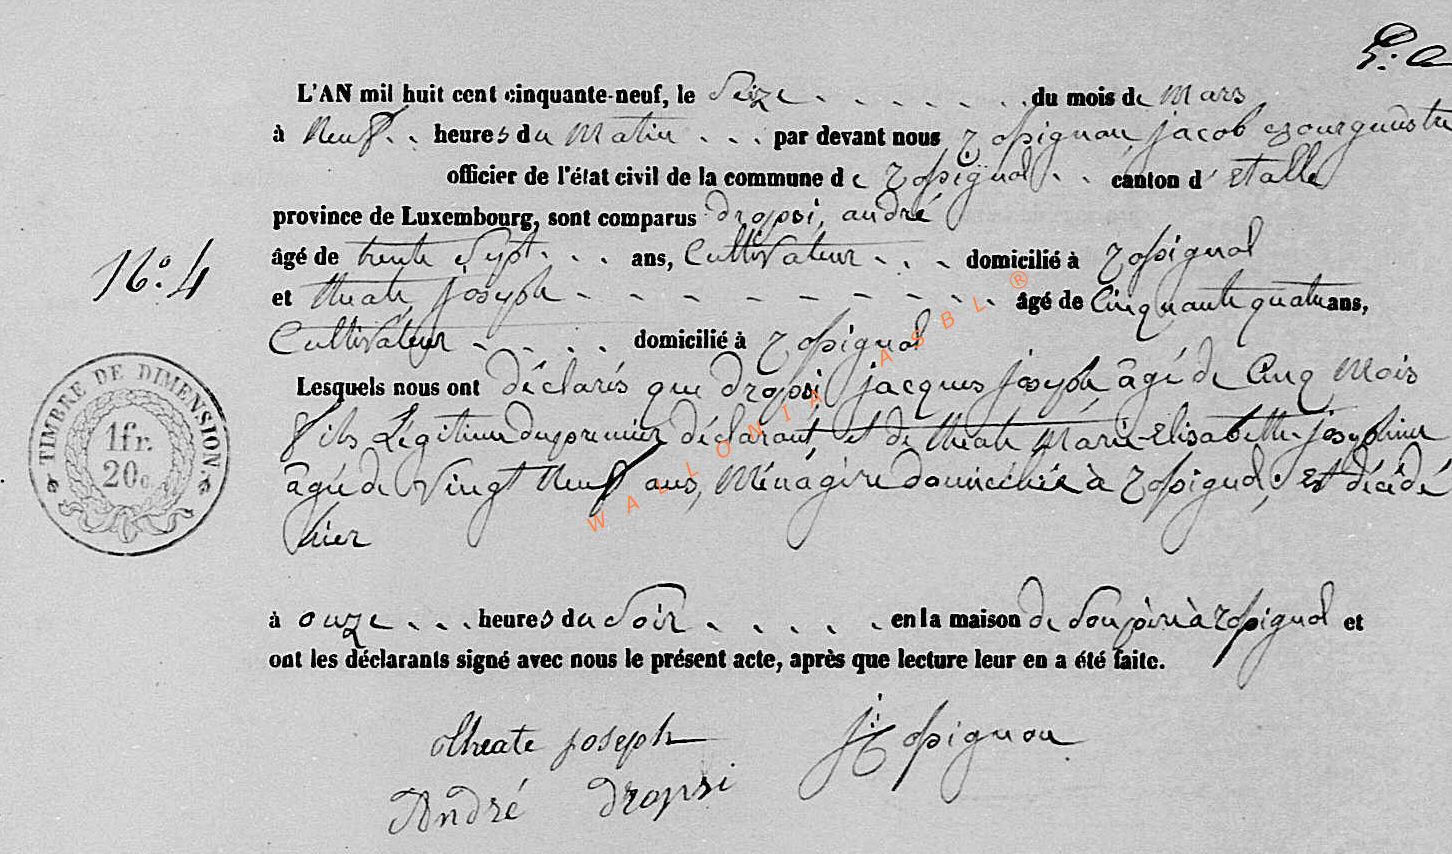 L'AN mil huit cent cinquante-neuf, le Seize . . . . . . . du mois de Mars
à Neuf . . heures du Matin . . . par devant nous Rossignon, jacob Bourguestre
officier de l'état civil de la commune de Rossignol . . canton d'étalle
province de Luxembourg, sont comparus dropsi, andré
N°. 4
âgé de trente Sept . . . ans, Cultivateur . . . domicilié à Rossignol
et theate, joseph - - - - - - - - - - âgé de Cinquante quatre ans,
Cultivateur . . . . domicilié à Rossignol
Lesquels nous ont déclarés que dropsi jacques joseph âgé de Cinq Mois
fils Légitime du premier déclarant, et de theate Marie-Elisabethe-josephine
agée de Vingt Neuf ans, Ménagire domiciliée à Rossignol, est décédé
hier
TIMBRE DE DIMENSION.
1 fr.
20 c
à onze . . . heures du Soir . . . . . en la maison de Son père à Rossignol et
ont les déclarants signé avec nous le présent acte, après que lecture leur en a été faite.
theate joseph
j: Rossignon
André dropsi
WALLONIA ASBL ®